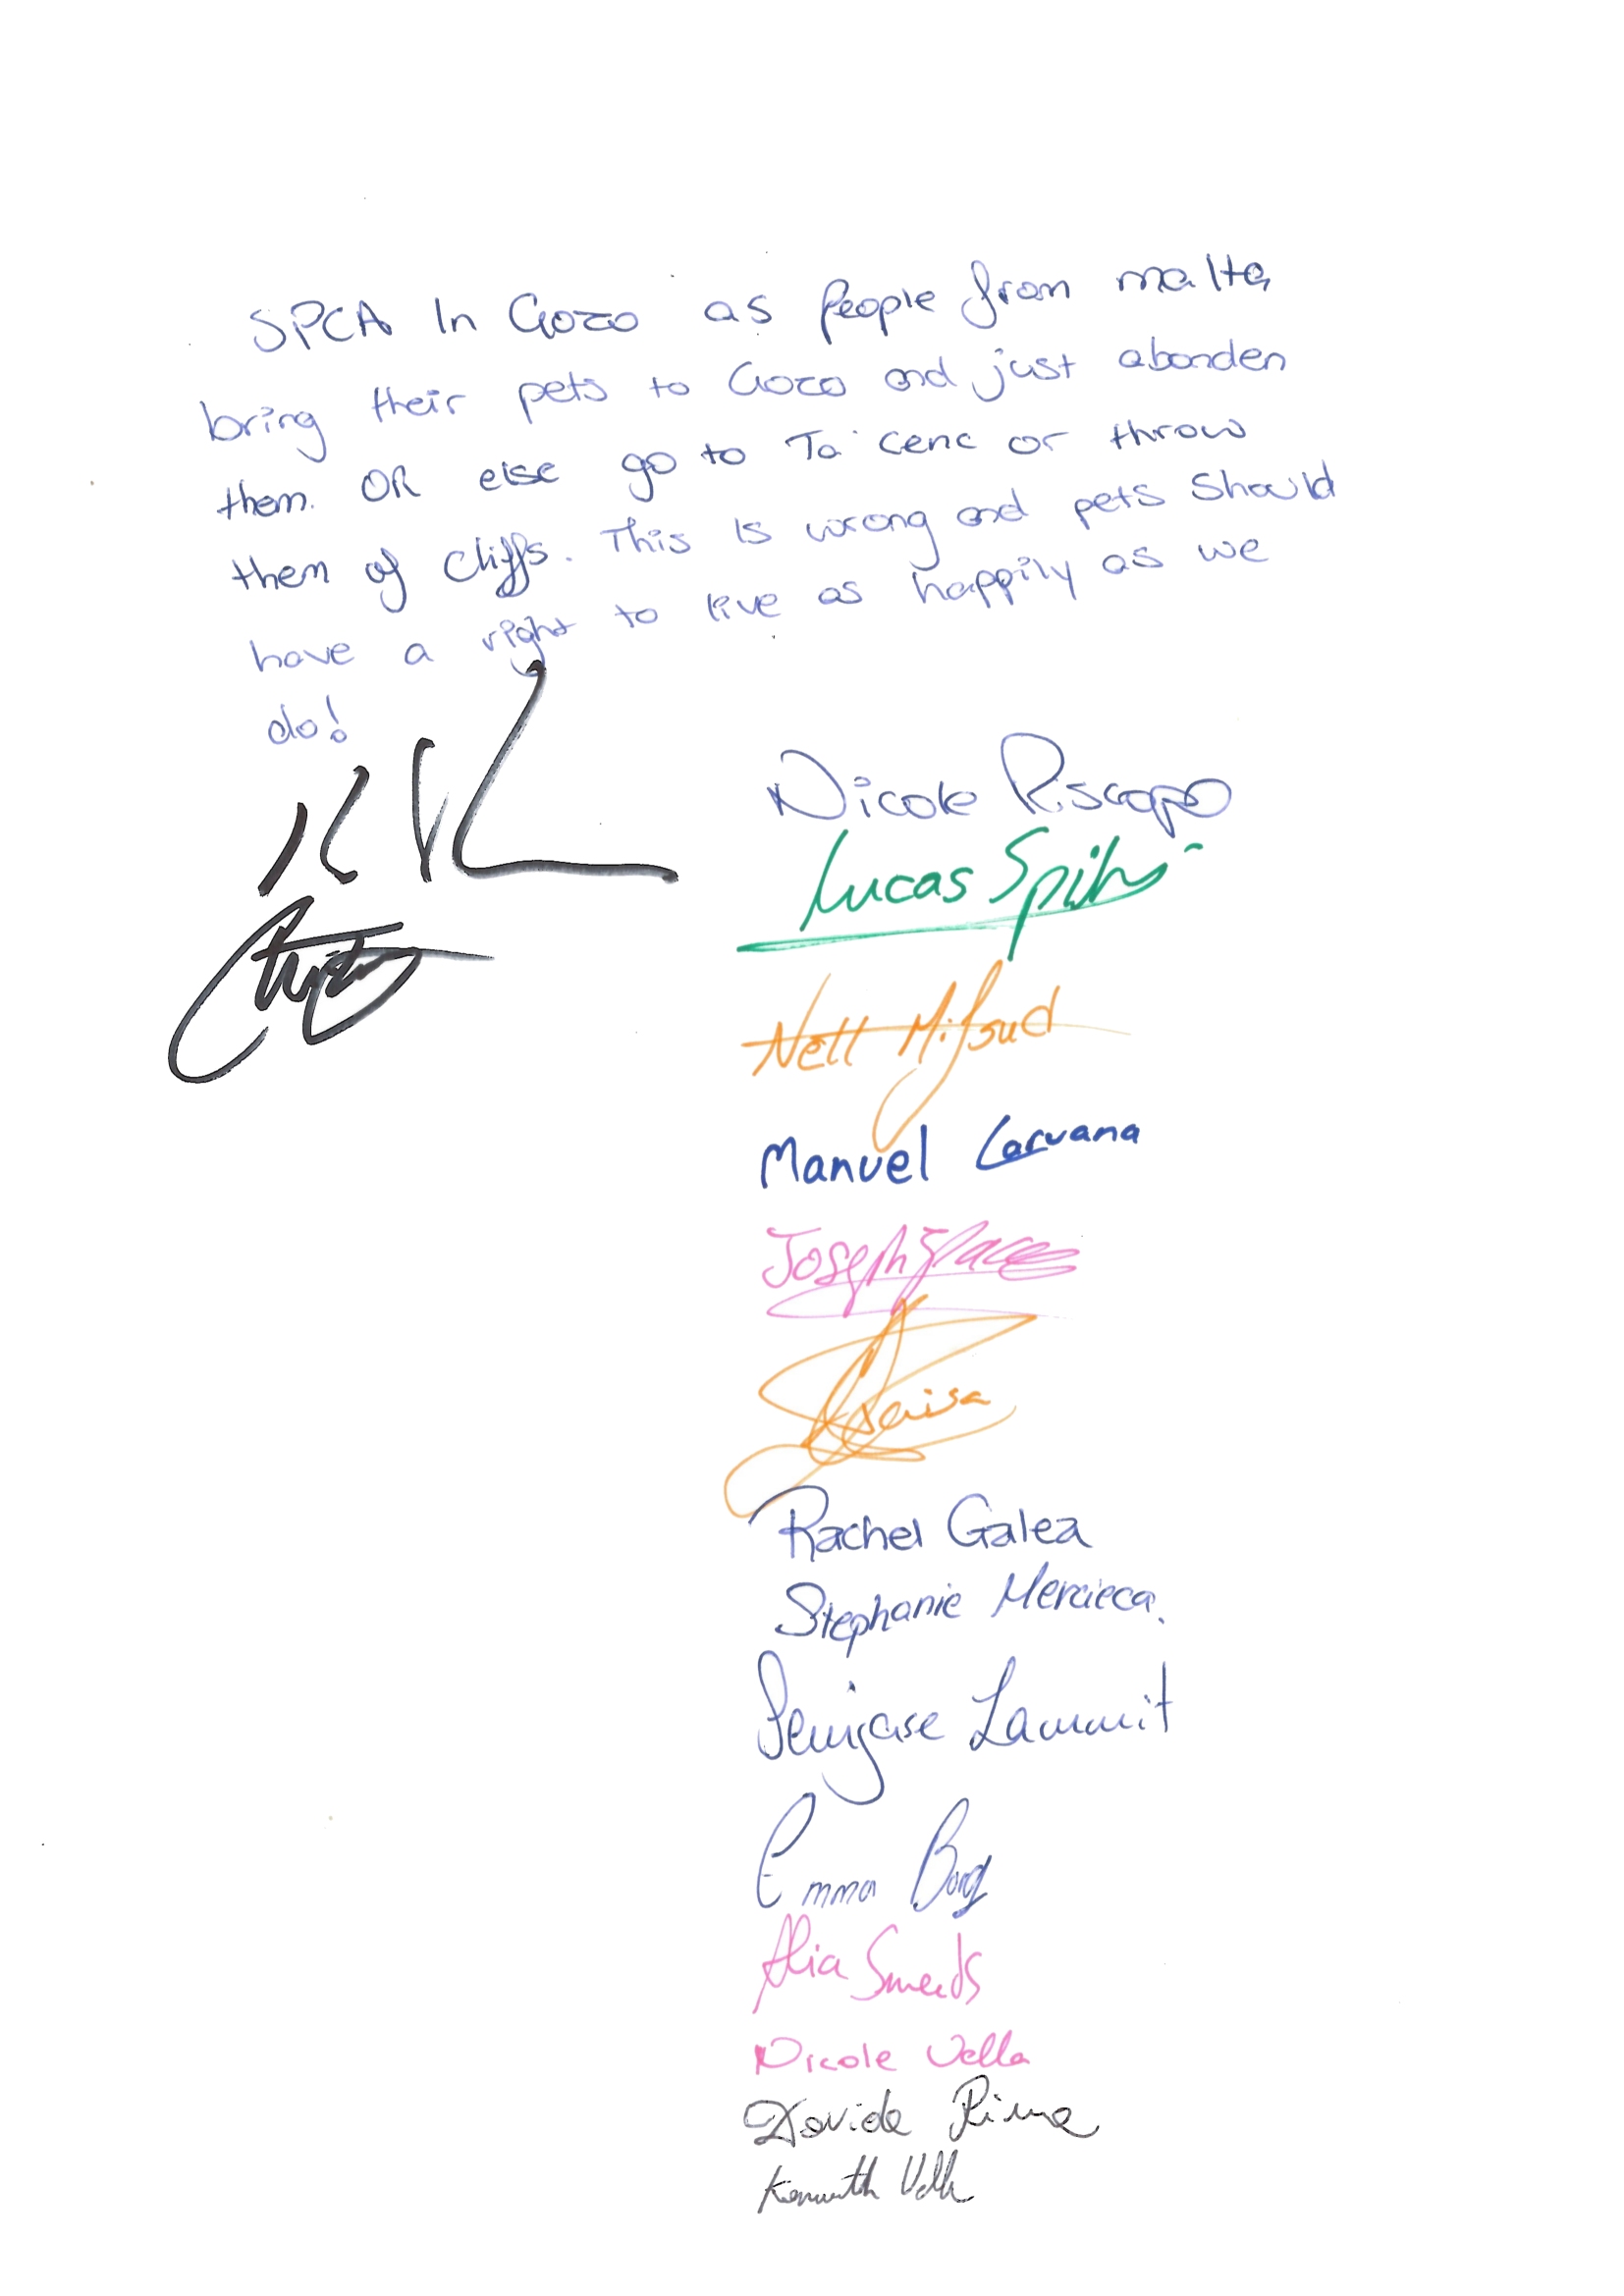 SPCA In Gozo as People from malta
bring their pets to Gozo and just abanden
them. OR else go to Ta' cenc or throw
them of cliffs. This Is wrong and pets Should
have a right to live as happily as we
do!
Nicole Piscopo
Lucas
Nell Mifsud
Manuel Caruana
Joseph
Rachel Galea
Stephanie Mercieca.
Emma Borg
Alia Smeets
Nicole Vella
Davide Pima
Kenneth Vella